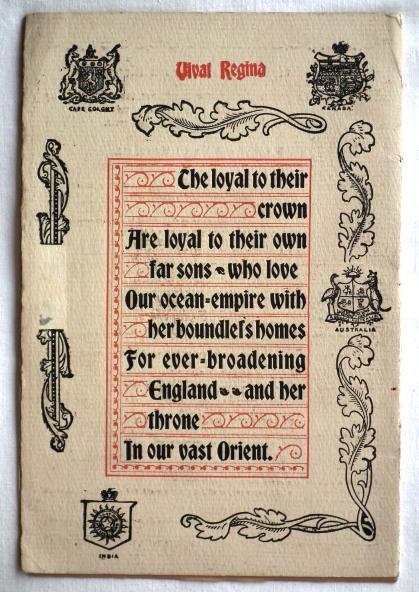 Vivat Regina
CAPE COLONY
CANADA
The loyal to their
crown
Are loyal to their own
far sons ~ who love
Our ocean=empire with
her boundleſs homes
For ever=broadening
England ~ ~ and her
throne
In our vast Orient.
AUSTRALIA
INDIA